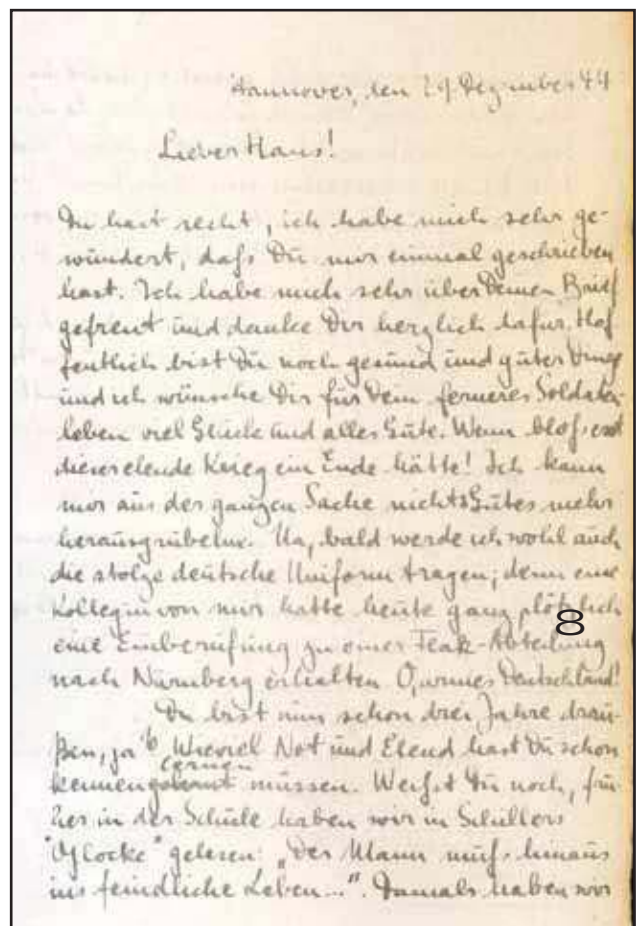 Hannover, den 29 Dezember 44
Lieber Hans!
Du hast recht, ich habe mich sehr ge-
wundert, daß Du nur einmal geschrieben
hast. Ich habe mich sehr über Deinen Brief
gefreut und danke Dir herzlich dafür. Hof-
fentlich bist Du noch gesund und guter Dinge
und ich wünsche Dir für Dein ferneres Soldaten-
leben viel Glück und alles Gute. Wenn bloß erst
dieser elende Krieg ein Ende hätte! Ich kann
mir aus der ganzen Sache nichts Gutes mehr
herausgrübeln. Na, bald werde ich wohl auch
die stolze deutsche Uniform tragen; denn eine
Kollegin von mir hatte heute ganz plötzlich
8
eine Einberufung zu einer Flak-Abteilung
nach Nürnberg erhalten. O, armes Deutschland!
Du bist nun schon drei Jahre drau-
ßen, ja? Wieviel Not und Elend hast Du schon
lernen
kennengelernt müssen. Weißt Du noch, frü-
her in der Schule haben wir in Schillers
"Glocke" gelesen: „Der Mann muß hinaus
ins feindliche Leben...". Damals haben wir